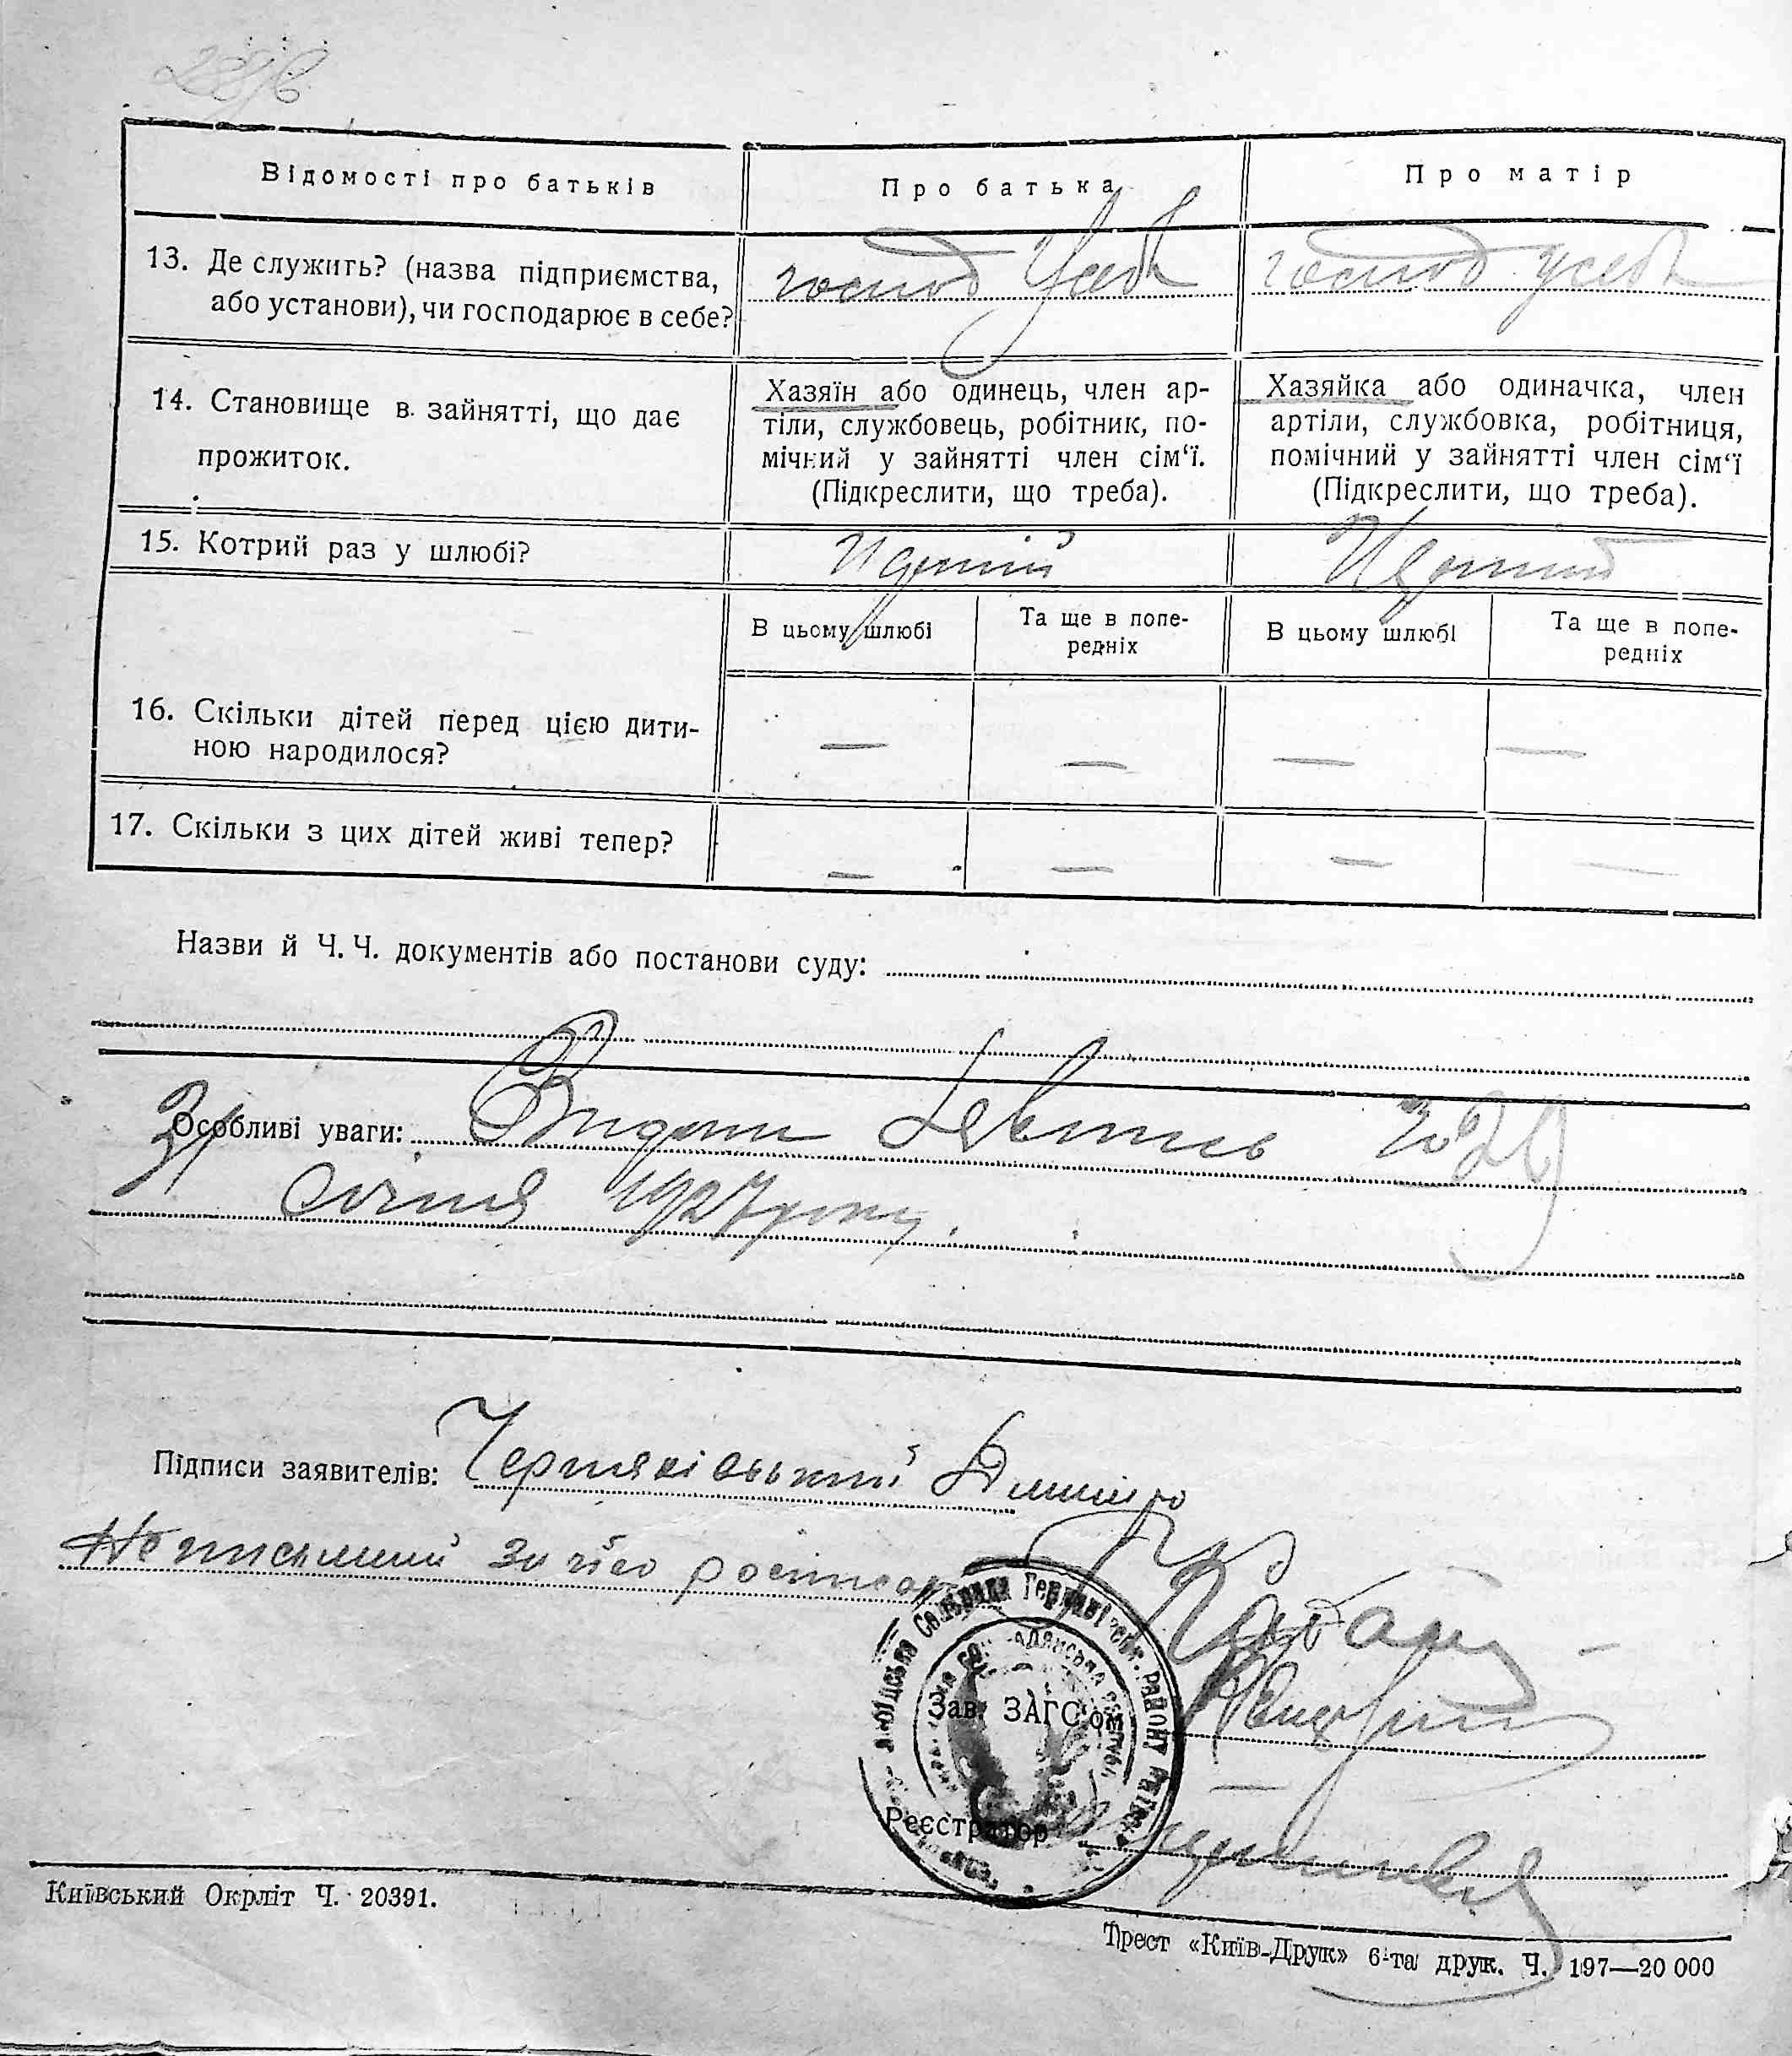 Відомості про батьків
Про батька
Про матір
13. Де служить? (назва підприємства,
або установи), чи господарює в себе?
господ Усебе
господ усебе
14. Становище в зайнятті, що дає
прожиток.
Хазяїн або одинець, член ар-
тіли, службовець, робітник, по-
мічний у зайнятті член сім'ї.
(Підкреслити, що треба).
Хазяйка або одиначка, член
артіли, службовка, робітниця,
помічний у зайнятті член сім'ї
(Підкреслити, що треба).
15. Котрий раз у шлюбі?
В цьому шлюбі
Та ще в попе-
редніх
В цьому шлюбі
Та ще в попе-
редніх
16. Скільки дітей перед цією дити-
ною народилося?
— — — —
17. Скільки з цих дітей живі тепер?
— — — —
Назви й Ч. Ч. документів або постанови суду:
Особливі уваги: № 29
31 Січня 1927 року.
Підписи заявителів: Черняхівський
Неписьмений за його
Зав. ЗАГС'ом
Реєстратор
Київський Окрліт Ч. 20391.
Трест «Київ-Друк» 6-та друк. Ч. 197—20 000